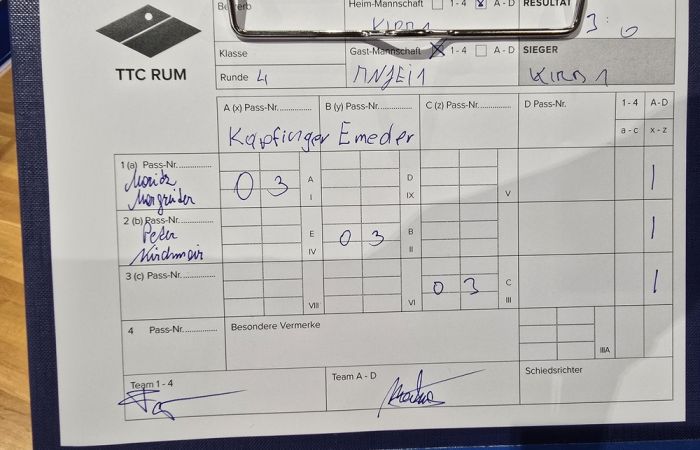 TTC RUM
Heim-Mannschaft 1 - 4 A - D
KIRB1
RESULTAT
3:0
Klasse
Gast-Mannschaft 1 - 4 A - D
ANZEI1
SIEGER
KIRB1
Runde 4
A (x) Pass-Nr. B (y) Pass-Nr. C (z) Pass-Nr. D Pass-Nr. 1 - 4 A-D
a - c x - z
Kapfinger Emeder
1 (a) Pass-Nr.
Moritz
Margreiter
0 3 A I D IX V 1
2 (b) Pass-Nr.
Peter
Kirchmair
E IV 0 3 B II 1
3 (c) Pass-Nr.
VIII VI 0 3 C III 1
4 Pass-Nr. Besondere Vermerke
IIIA
Team 1 - 4
Team A - D
Schiedsrichter